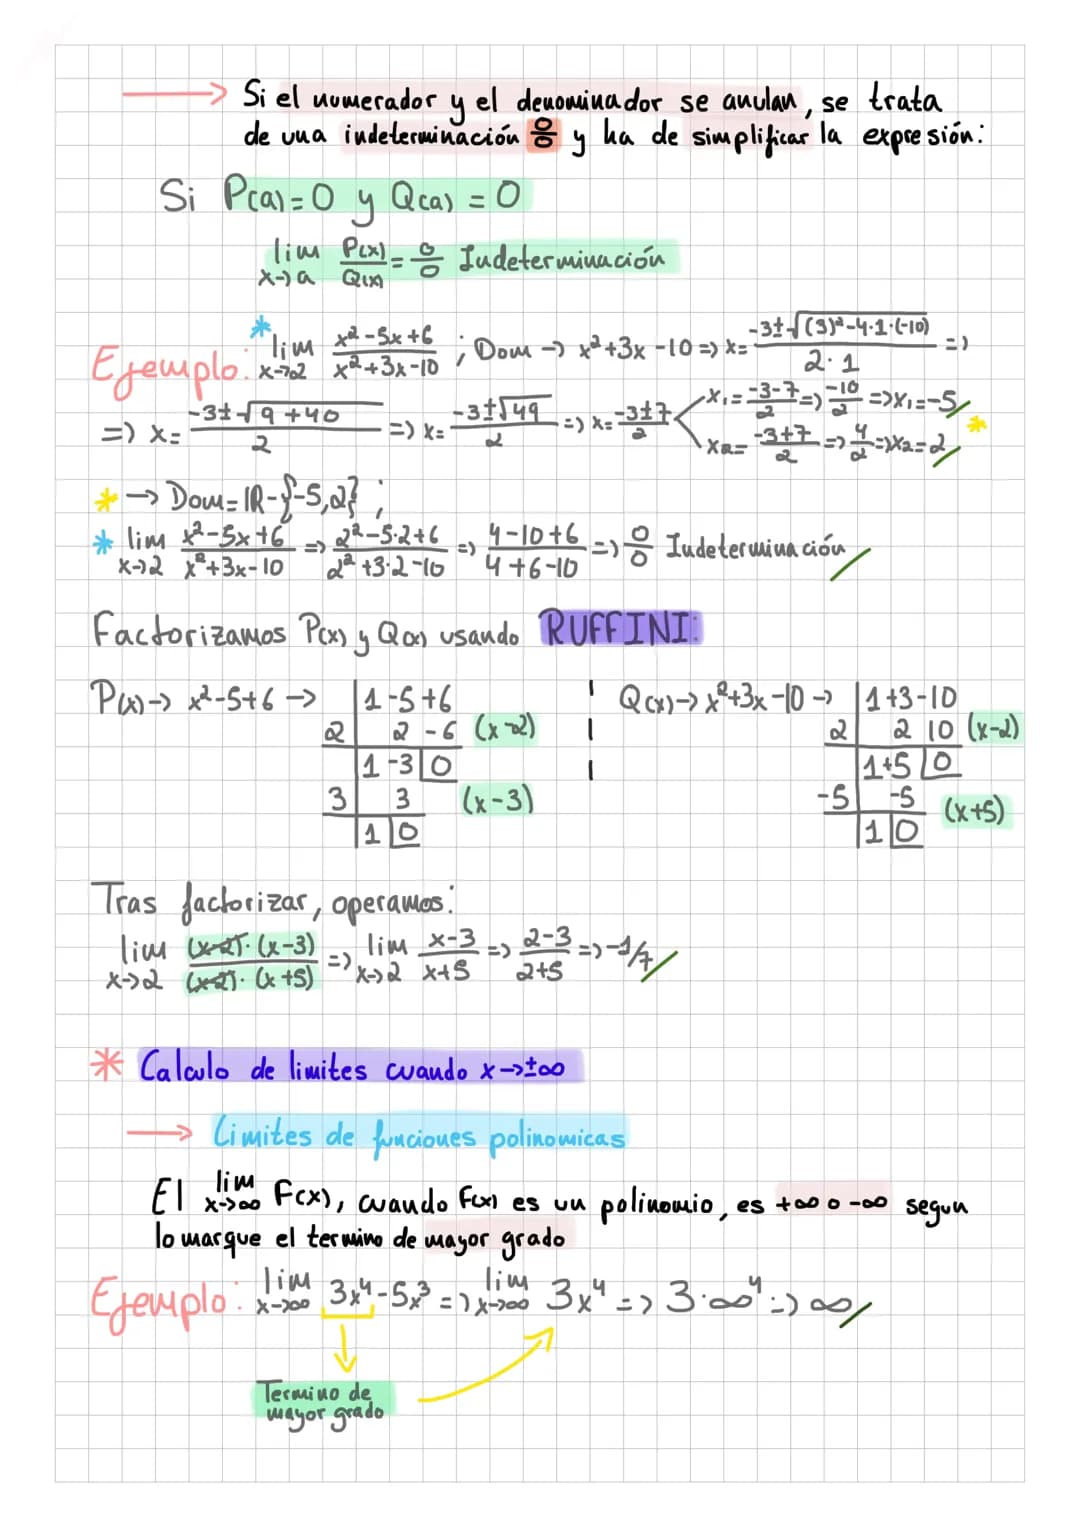 → Si el numerador y el denominador se anulan, se trata
de una indeterminación 0/0 y ha de simplificar la expresión:
Si P(a)=0 y Q(a) = 0
lim x→a P(x)/Q(x) = 0/0 Indeterminación
Ejemplo: * lim x→2 (x²-5x+6)/(x²+3x-10) ; Dom → x²+3x-10 => x= (-3±√((3)²-4·1·(-10)))/(2·1) =>
=> x= (-3±√(9+40))/2 => x= (-3±√49)/2 => x= (-3±7)/2 < x₁= (-3-7)/2 => -10/2 => x₁=-5
x₂= (-3+7)/2 => 4/2 => x₂=2 *
* → Dom= ℝ-{-5,2} ;
* lim x→2 (x²-5x+6)/(x²+3x-10) => (2²-5·2+6)/(2²+3·2-10) => (4-10+6)/(4+6-10) => 0/0 Indeterminación
Factorizamos P(x) y Q(x) usando RUFFINI:
P(x)→ x²-5+6 → | 1 -5 +6
2 | 2 -6 (x-2)
| 1 -3 | 0
3 | 3 (x-3)
| 1 | 0
Q(x)→ x²+3x-10 → | 1 +3 -10
2 | 2 10 (x-2)
| 1 +5 | 0
-5 | -5 (x+5)
| 1 | 0
Tras factorizar, operamos:
lim x→2 ((x-2)·(x-3))/((x-2)·(x+5)) => lim x→2 (x-3)/(x+5) => (2-3)/(2+5) => -1/7
* Calculo de limites cuando x→±∞
→ Limites de funciones polinomicas
El lim x→∞ F(x), cuando F(x) es un polinomio, es +∞ o -∞ segun
lo marque el termino de mayor grado
Ejemplo: lim x→∞ 3x⁴-5x³ => lim x→∞ 3x⁴ => 3·∞⁴ => ∞
Termino de
mayor grado